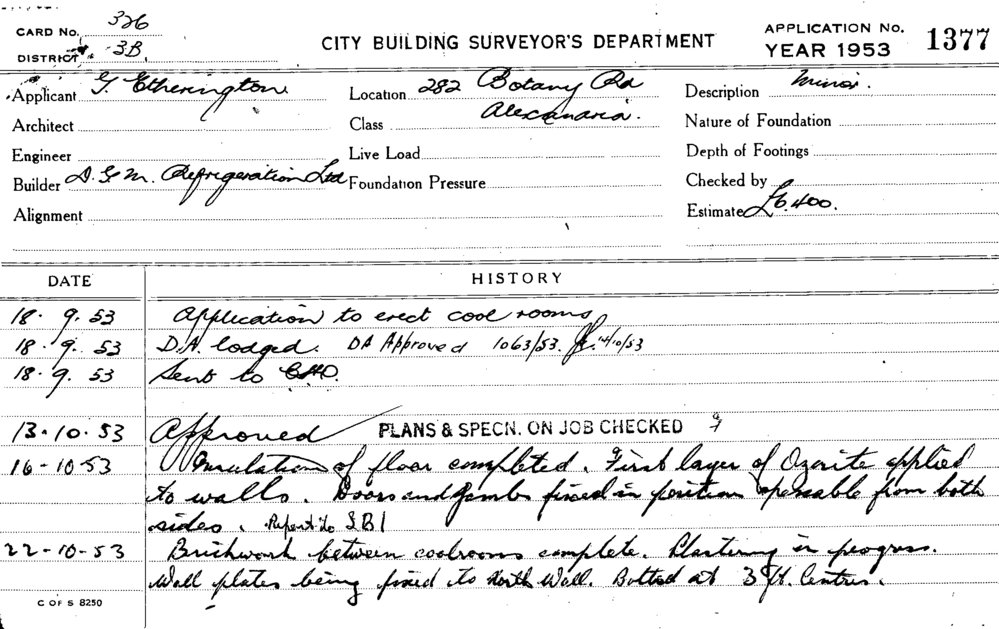 CARD No. 326
DISTRICT 3B
CITY BUILDING SURVEYOR'S DEPARTMENT
APPLICATION No.
YEAR 1953
1377
Applicant G. Etherington
Location 282 Botany Rd
Alexandria.
Description Minor.
Architect
Class
Nature of Foundation
Engineer
Live Load
Depth of Footings
Builder D. G. M. Refrigeration Ltd
Foundation Pressure
Checked by
Alignment
Estimate £6,400.
DATE
HISTORY
18. 9. 53 Application to erect cool rooms
18. 9. 53 D.A. lodged. DA Approved 1063/53. 14/10/53
18. 9. 53 Sent to CHO.
13. 10. 53 Approved PLANS & SPECN. ON JOB CHECKED
16-10-53 Insulation of floor completed. First layer of Ozerite applied
to walls. Doors and Jambs fixed in position openable from both
sides. Report to SBI
22-10-53 Brickwork between coolrooms complete. Plastering in progress.
Wall plates being fixed to North Wall. Bolted at 3 ft. Centres.
C OF S 8250